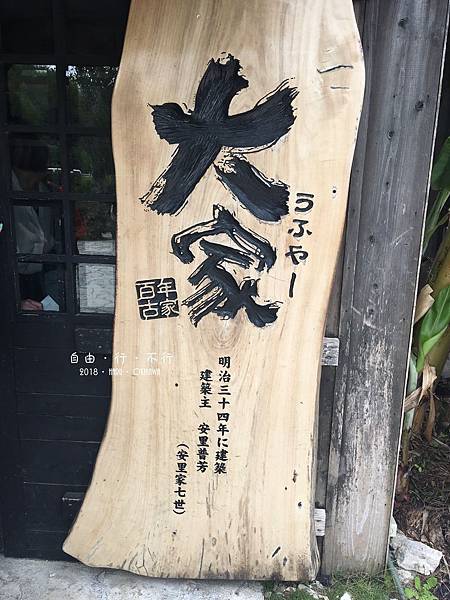 大家
うふやー
百年
古家
明治三十四年に建築
建築主 安里普芳
(安里家七世)
自由・行・不行
2018・HARU・OKINAWA